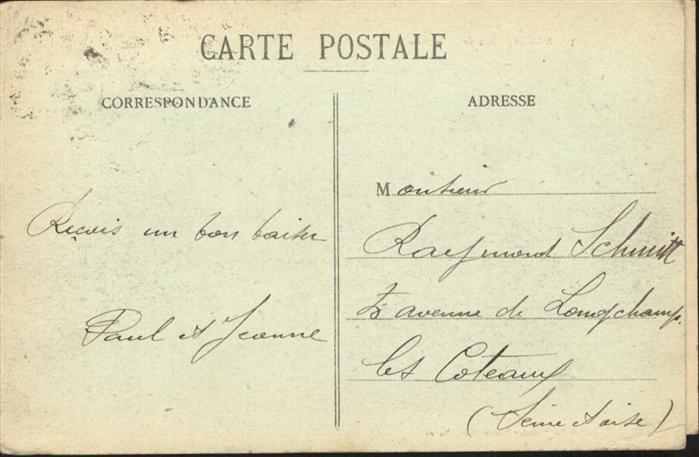 CARTE POSTALE
CORRESPONDANCE
ADRESSE
Reçois un bon baiser
Paul et Jeanne
Monsieur
Raymond Schmitt
avenue de Longchamp.
les Coteaux
(Seine et Oise)